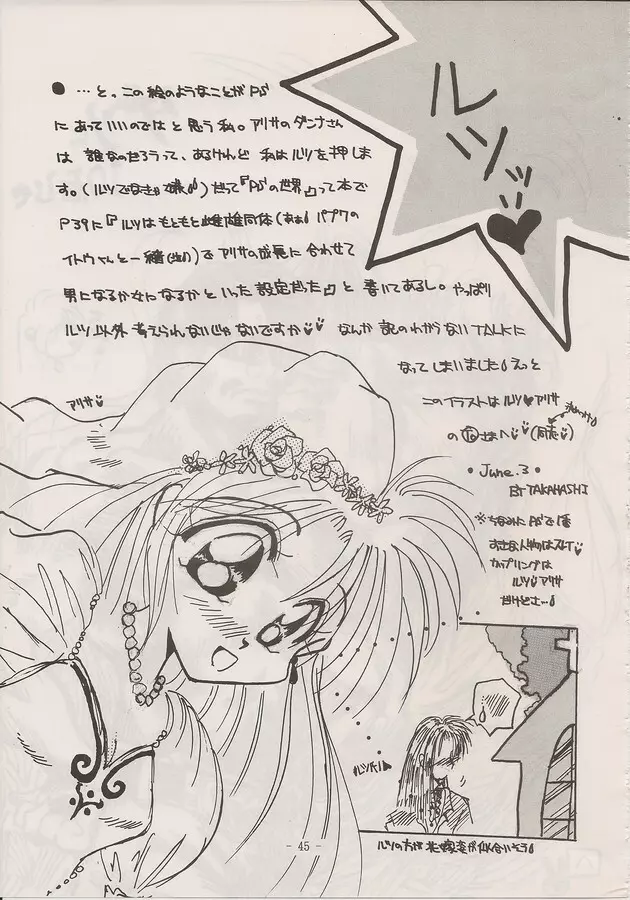 ルツッ♥
● …と。この絵のようなことがPS
にあっていいのではと思う私。アリサのダンナさん
は 誰なのだろうって、あるけれど 私はルツを押しま
す。(ルツでなきゃ嫌♪)だって『PSの世界』って本で
P39に『ルツはもともと雌雄同体(ああ♪パプワの
イトウくんと一緒(笑))でアリサの成長に合わせて
男になるか女になるかといった設定だった』と書いてあるし。やっぱり
ルツ以外考えられないじゃないですか なんか訳のわからないTALKに
なってしまいました♪えっと
このイラストはルツ♥アリサ
の
さまへ(同志)
• June.3 •
BY TAKAHASHI
※ちなみにPSで1番
おきな人物はスレイ
カップリングは
ルツ♥アリサ
だけどさ…♪
アリサ
ルツ氏
ルツの方が花嫁姿が似合いそう♪
- 45 -